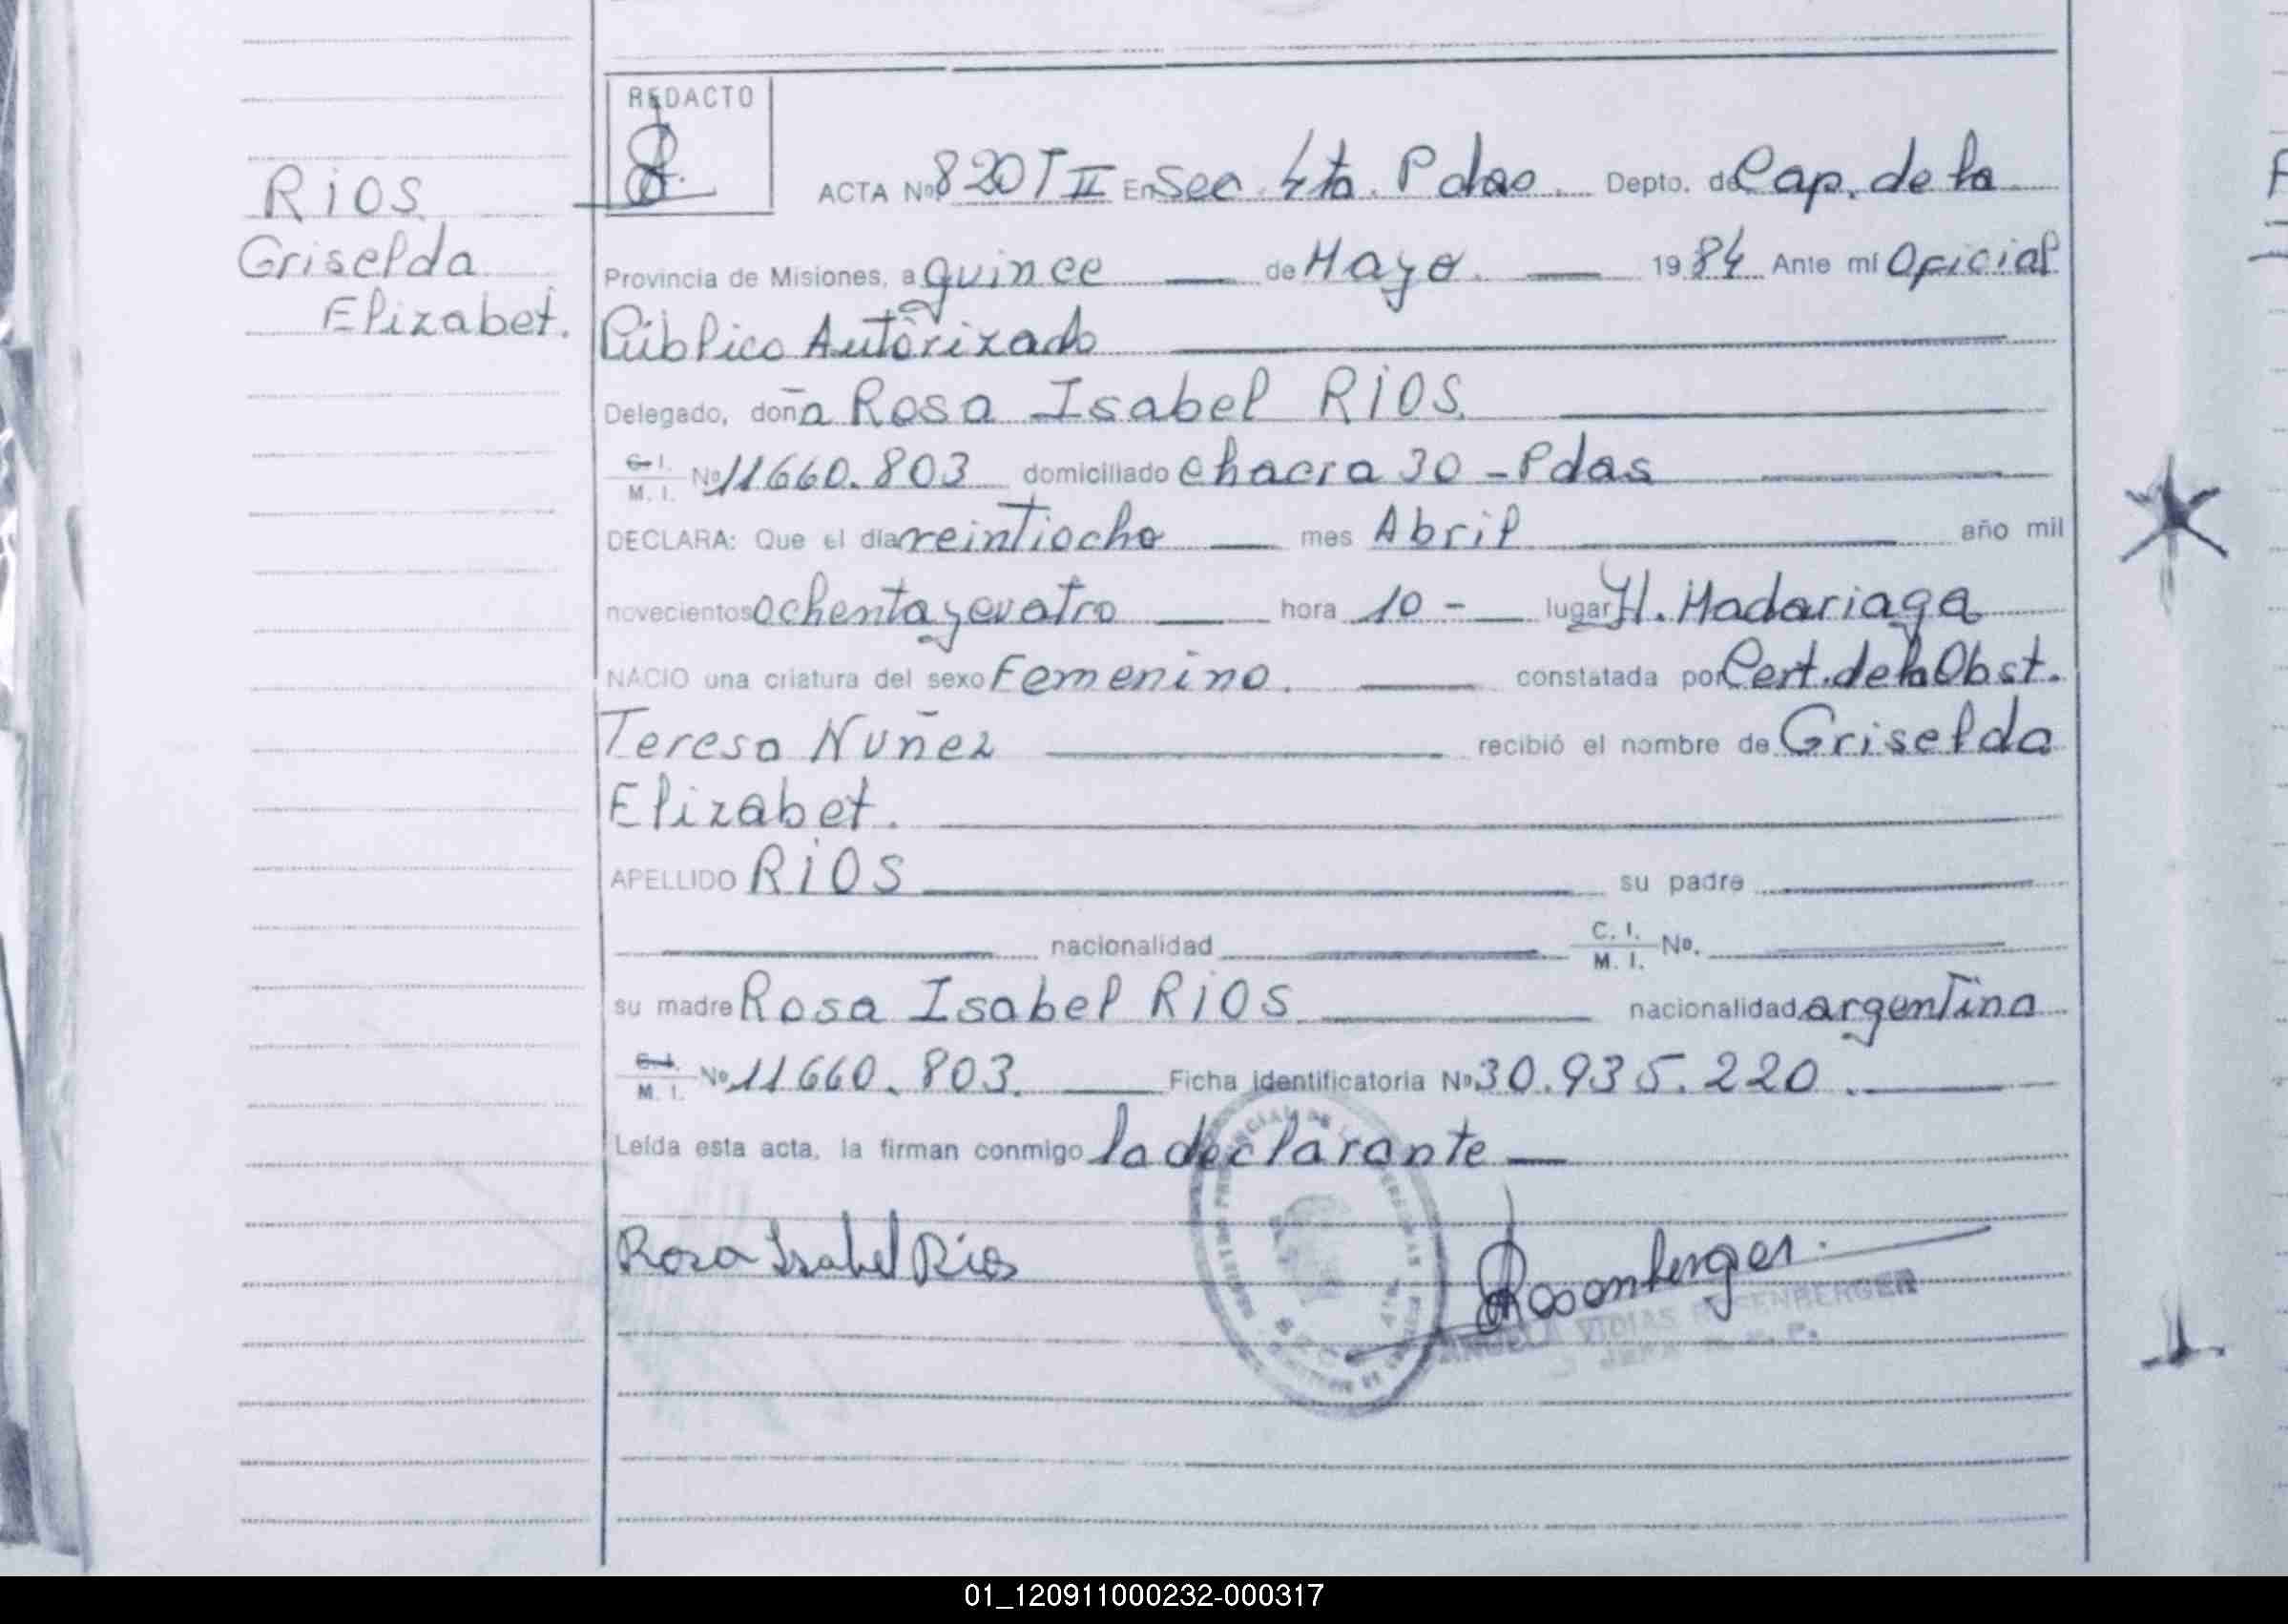 REDACTO
RIOS
Griselda
Elizabet.
ACTA Nº 820 T II En Sec. 4ta. Pdas. Depto. de Cap. de la
Provincia de Misiones, a quince de Mayo. 1984 Ante mí Oficial
Público Autorizado
Delegado, doña Rosa Isabel RIOS.
C.I. M. I. Nº 11660.803 domiciliado chacra 30 - Pdas
DECLARA: Que el día veintiocho mes Abril año mil
novecientos ochenta y cuatro hora 10 - lugar H. Madariaga
NACIO una criatura del sexo Femenino. constatada por Cert. de la Obst.
Teresa Nuñez recibió el nombre de Griselda
Elizabet.
APELLIDO RIOS su padre
nacionalidad C. I. M. I. Nº.
su madre Rosa Isabel RIOS nacionalidad argentina
C.I. M. I. Nº 11660.803. Ficha identificatoria Nº 30.935.220.
Leída esta acta, la firman conmigo la declarante
Rosa Isabel Rios Rosenberger.
ROSENBERGER
01_120911000232-000317